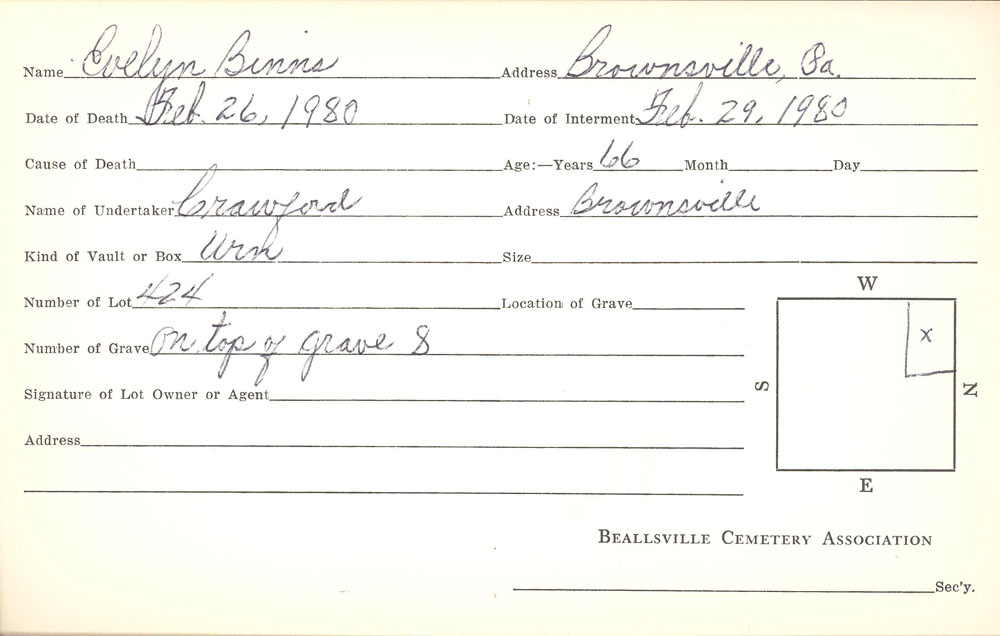 Name Evelyn Binns Address Brownsville, Pa.
Date of Death Feb. 26, 1980 Date of Interment Feb. 29, 1980
Cause of Death Age:—Years 66 Month Day
Name of Undertaker Crawford Address Brownsville
Kind of Vault or Box Urn Size
Number of Lot 424 Location of Grave
Number of Grave On top of grave 8
Signature of Lot Owner or Agent
Address
W
X
S
N
E
BEALLSVILLE CEMETERY ASSOCIATION
Sec'y.